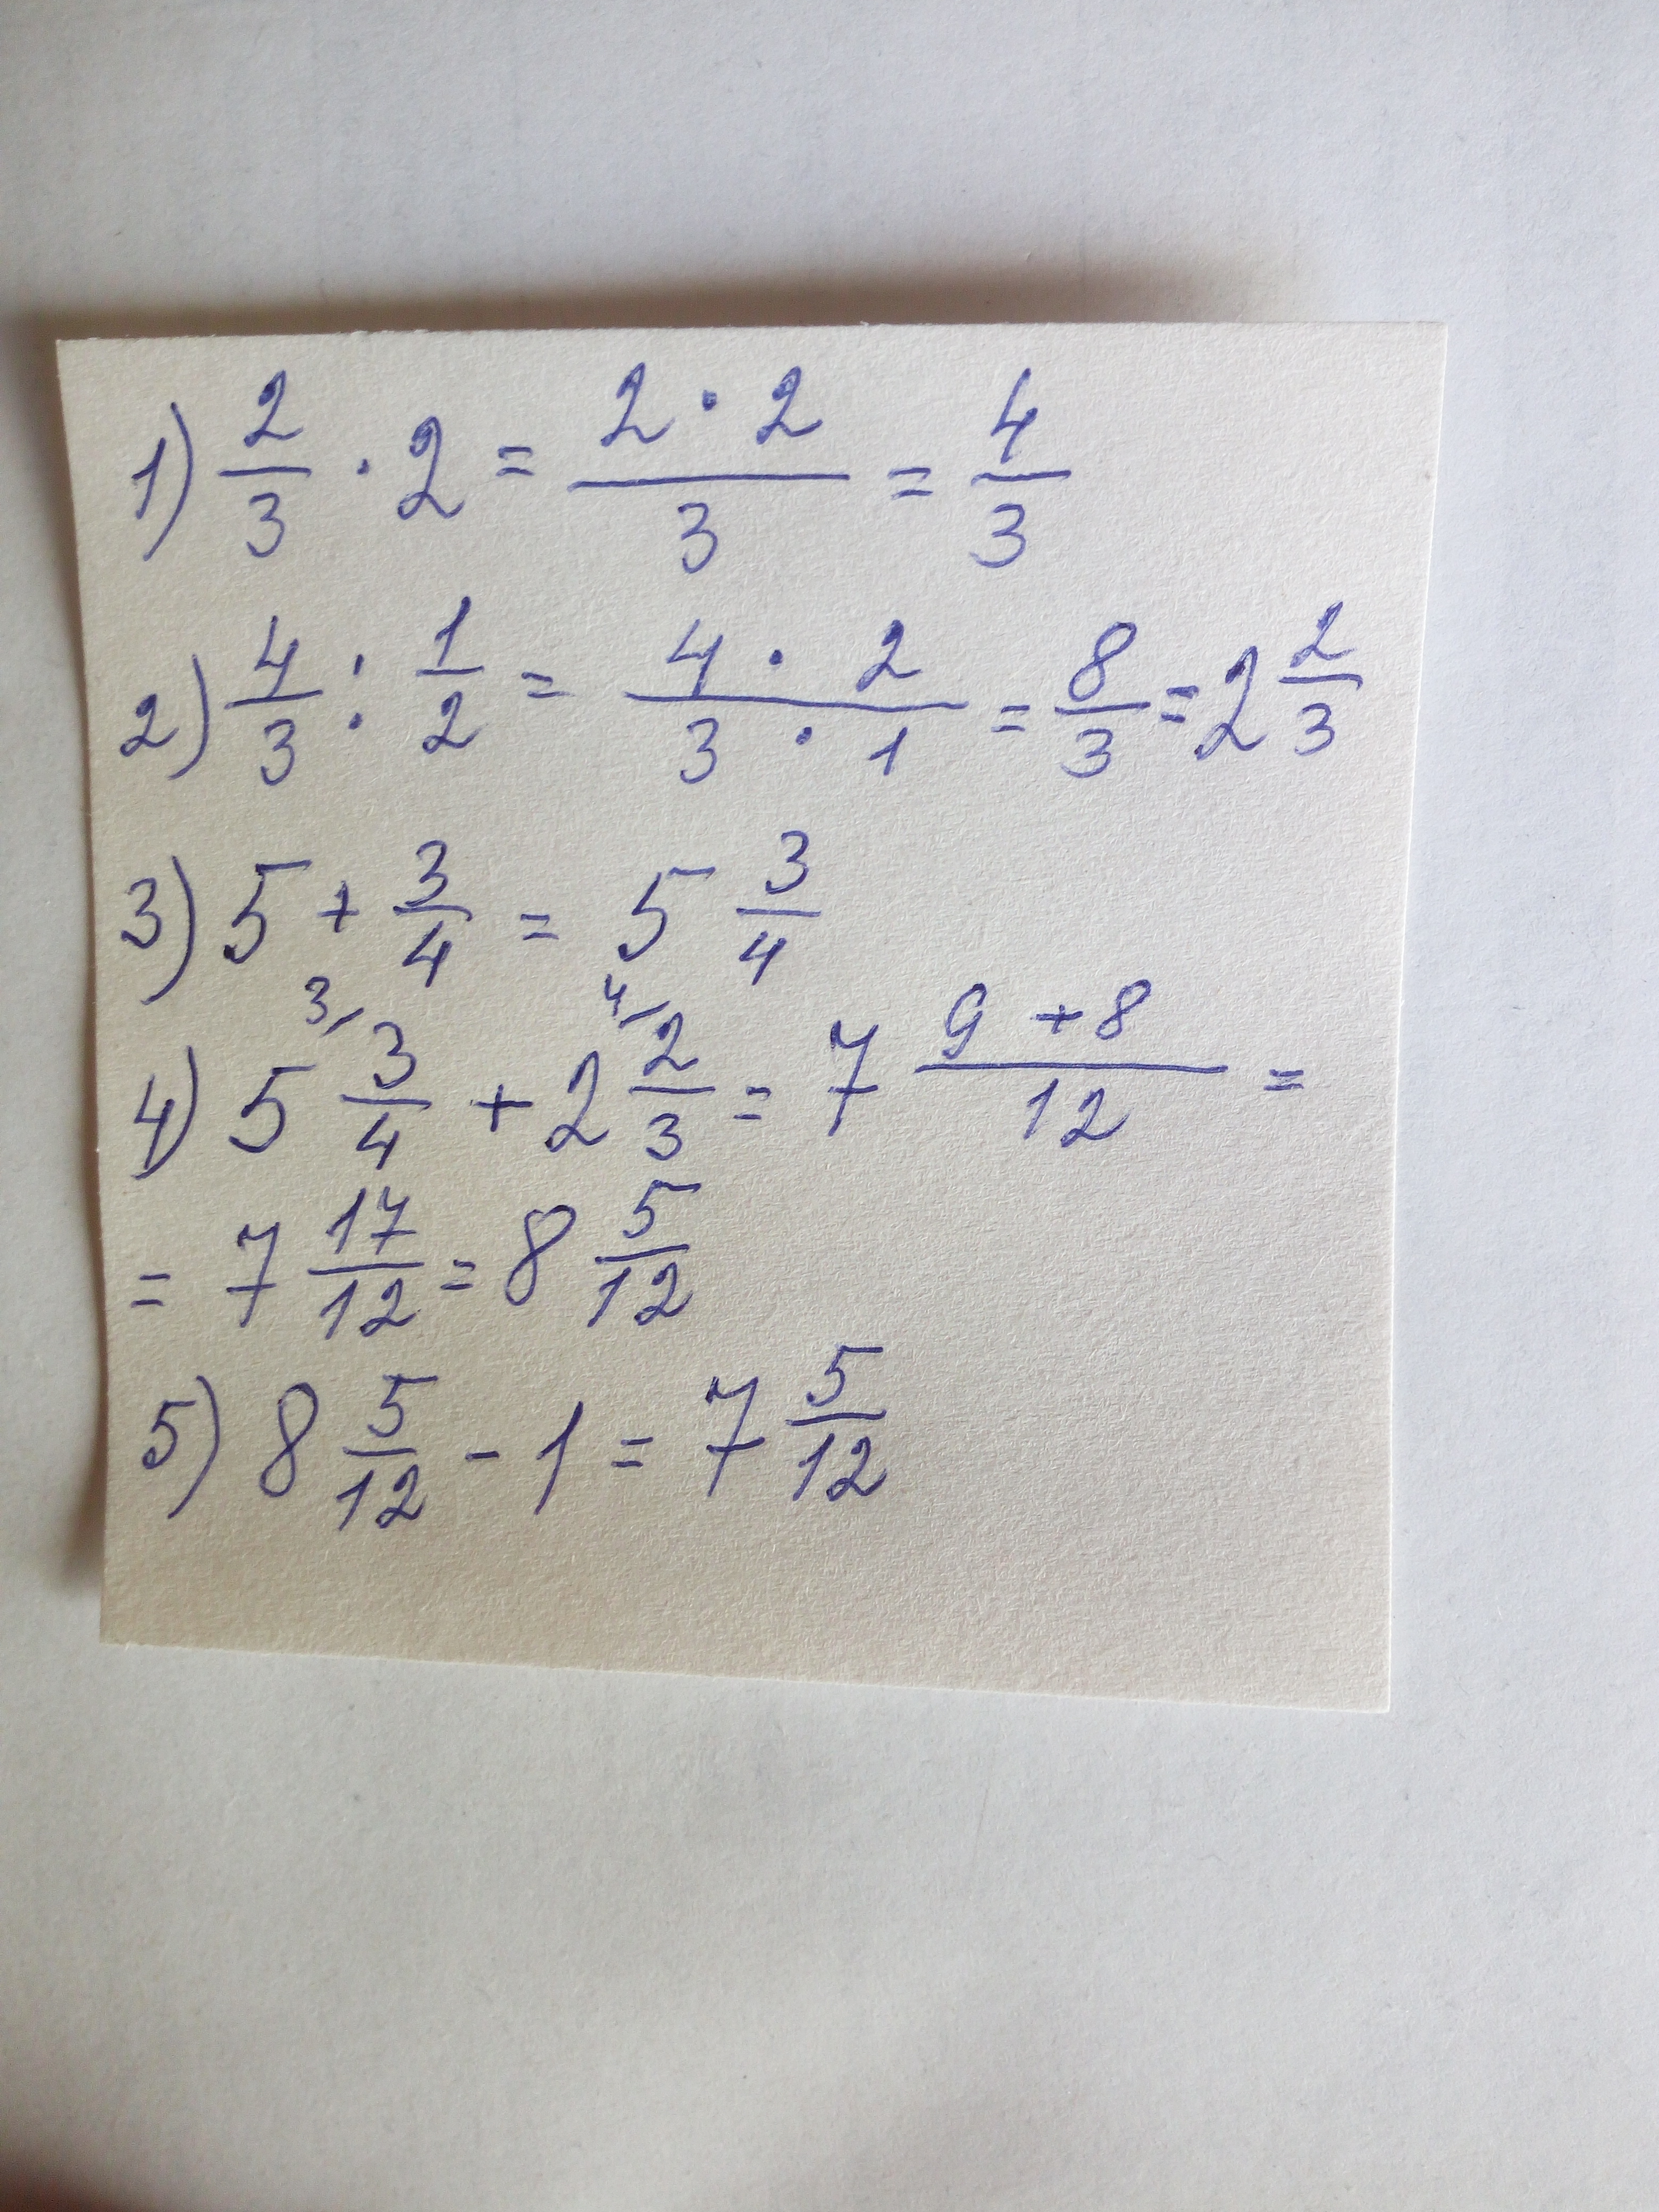 1) 2/3 · 2 = (2 · 2)/3 = 4/3
2) 4/3 : 1/2 = (4 · 2)/(3 · 1) = 8/3 = 2 2/3
3) 5 + 3/4 = 5 3/4
4) 5 3/ 3/4 + 2 4/ 2/3 = 7 (9 + 8)/12 =
= 7 17/12 = 8 5/12
5) 8 5/12 - 1 = 7 5/12